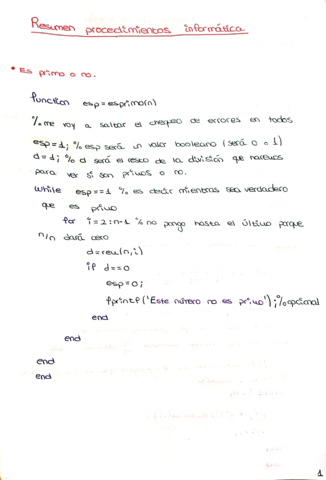 Resumen procedimientos informática
* Es primo o no.
function esp=esprimo(n)
% me voy a saltar el chequeo de errores en todos
esp=1; % esp será un valor booleano (será 0 o 1)
d=1; % d será el resto de la división que haremos
para ver si son primos o no.
while esp==1 % es decir mientras sea verdadero
que es primo
for i=2:n-1 % no pongo hasta el último porque
n/n dará cero
d=rem(n,i)
if d==0
esp=0;
fprintf('Este número no es primo'); % opcional
end
end
end
end
1